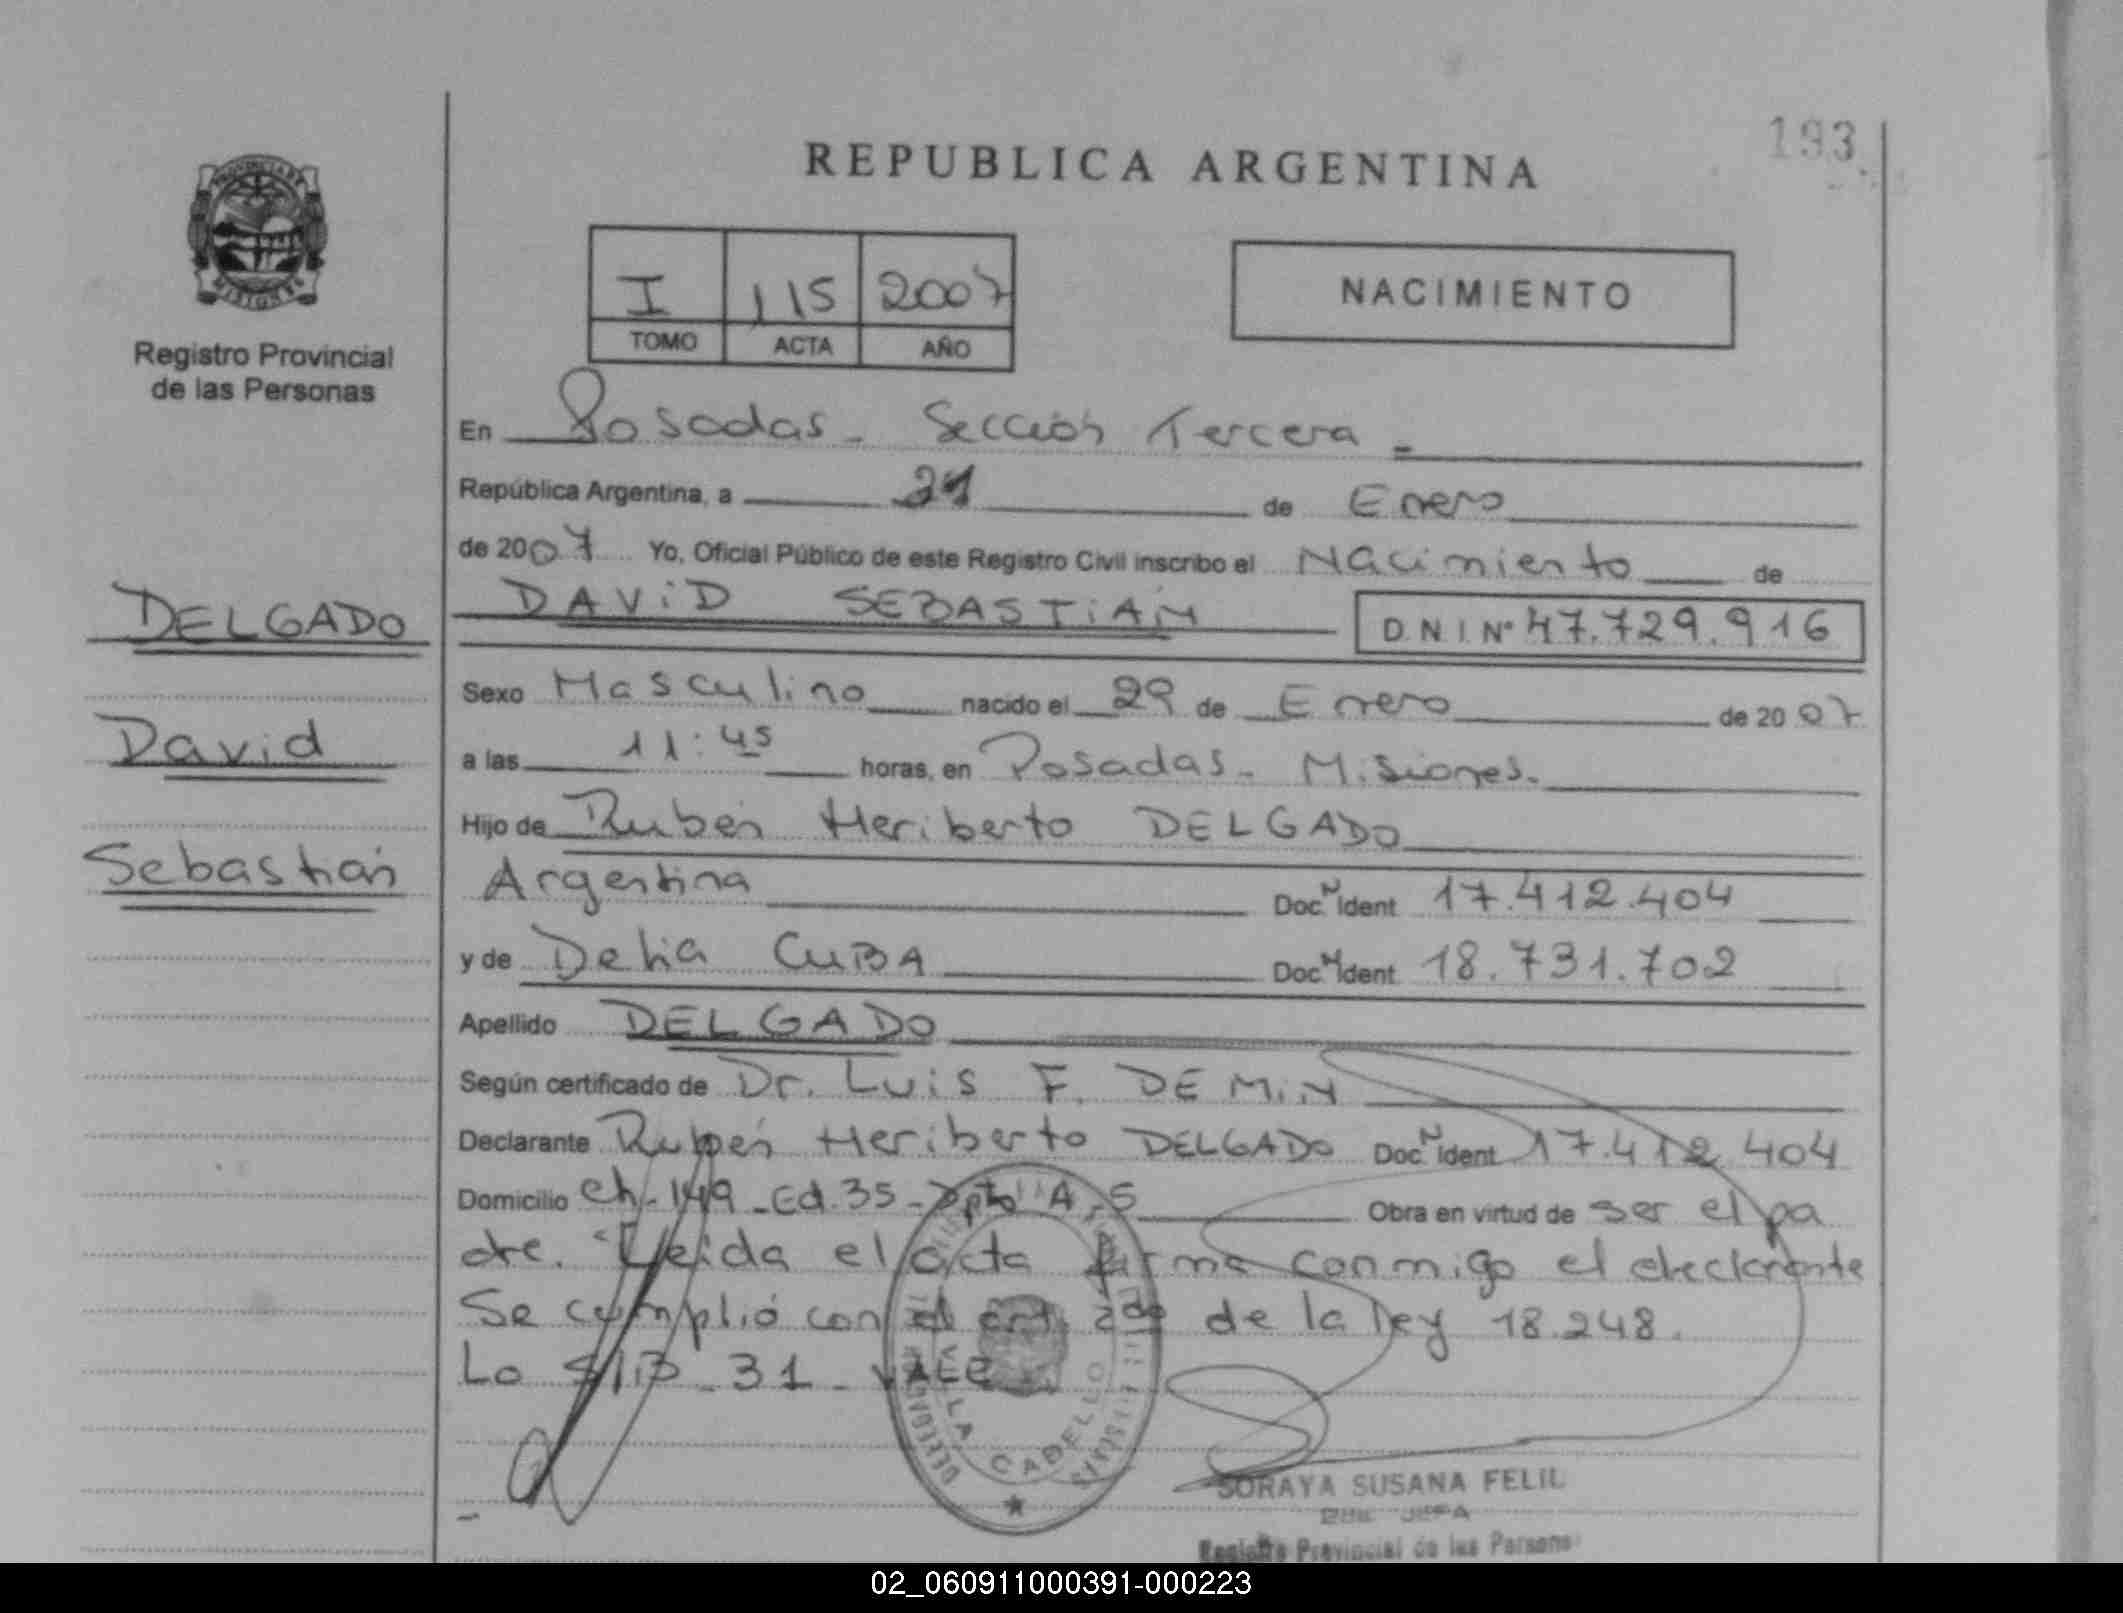 193
REPUBLICA ARGENTINA
PROVINCIA DE
MISIONES
Registro Provincial
de las Personas
I 115 2007
TOMO ACTA AÑO
NACIMIENTO
En Posadas - Sección Tercera -
República Argentina, a 31 de Enero
de 2007 Yo, Oficial Público de este Registro Civil inscribo el Nacimiento de
DELGADO
DAVID SEBASTIÁN D.N.I. Nº 47.729.916
Sexo Masculino nacido el 29 de Enero de 2007
David
a las 11:45 horas, en Posadas - Misiones.
Hijo de Rubén Heriberto DELGADO
Sebastián
Argentina Doc. N Ident 17.412.404
y de Delia CUBA Doc. N Ident 18.731.702
Apellido DELGADO
Según certificado de Dr. Luis F. DEMIN
Declarante Rubén Heriberto DELGADO Doc. N Ident 17.412.404
Domicilio Ch-149-Ed.35-Dpto "A"-5 Obra en virtud de ser el pa
dre. Leida el acta firma conmigo el declarante
Se cumplió con el art. 2do de la ley 18.248.
Lo S/B - 31 - VALE
VILLA CABELLO
SORAYA SUSANA FELIL
JEFA
Registro Provincial de las Persona
02_060911000391-000223